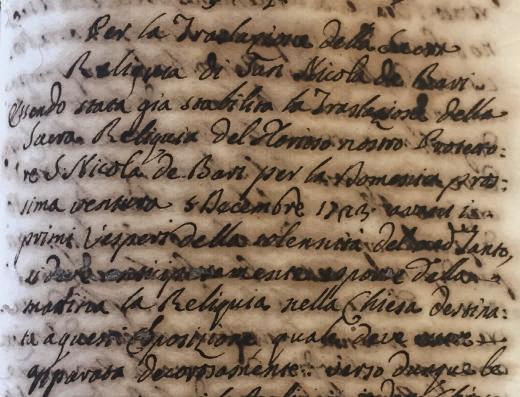 Per la Traslazione della Sacra
Reliquia di San Nicola de Bari
Essendo stata già stabilita la Traslazione della
Sacra Reliquia del Glorioso nostro Protetto:
re S Nicola de Bari per la Domenica pros:
sima ventura 5 Decembre 1723
primi Vesperi della solennità del Santo,
si deve esporre della
matina la Reliquia nella Chiesa destina:
ta à questa Esposizione quale deve
apparata decorosamente: verso dunque le